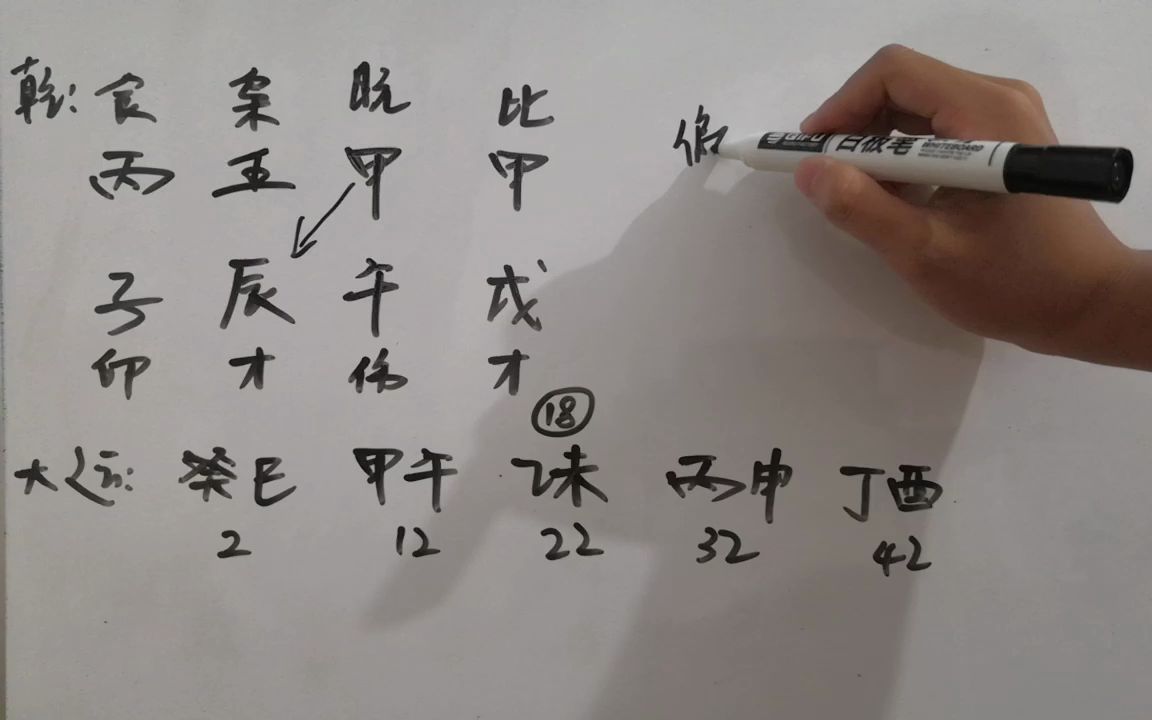 乾: 食 枭 日元 比
丙 壬 甲 甲
子 辰 午 戌
印 才 伤 才
18
大运: 癸巳 甲午 乙未 丙申 丁酉
2 12 22 32 42
白板笔
WHITEBOARD